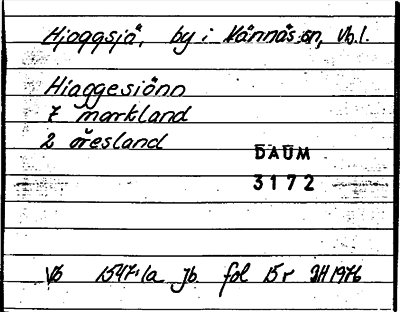 Hjåggsjö, by i Vännäs sn, Vb.l.
Hiaggesiönn
7 markland
2 öresland
DAUM
3172
Vb 1547:1a Jb. fol 15r JH 1976